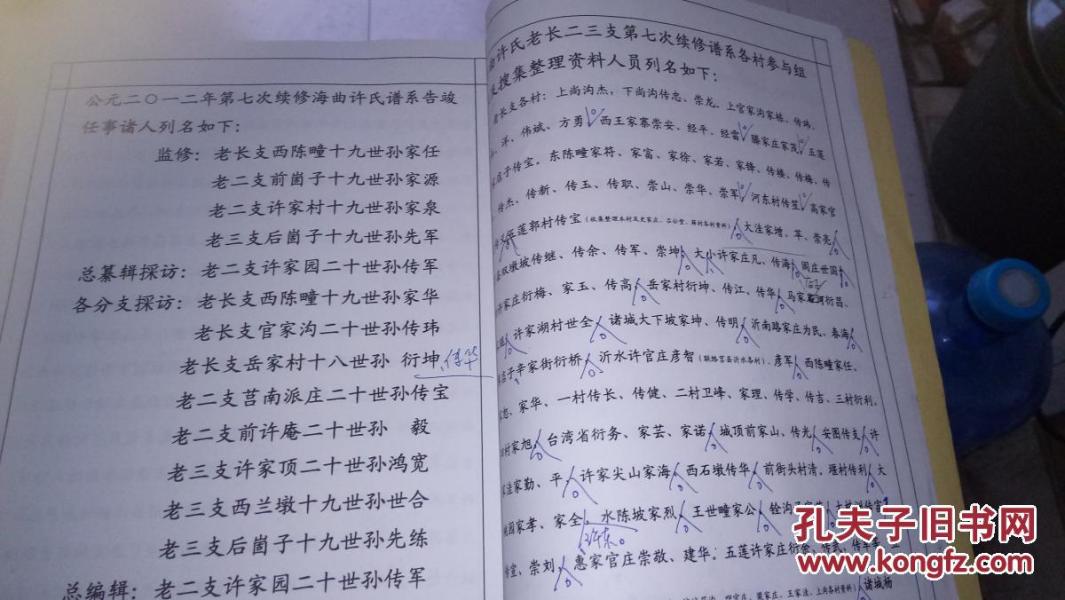 公元二〇一二年第七次续修海曲许氏谱系告竣
任事诸人列名如下：
监修：老长支西陈疃十九世孙家任
老二支前崮子十九世孙家源
老二支许家村十九世孙家泉
老三支后崮子十九世孙先军
总纂辑探访：老二支许家园二十世孙传军
各分支探访：老长支西陈疃十九世孙家华
老长支官家沟二十世孙传玮
老长支岳家村十八世孙 衍坤、传华
老二支莒南派庄二十世孙传宝
老二支前许庵二十世孙 毅
老三支许家顶二十世孙鸿宽
老三支西兰墩十九世孙世合
老三支后崮子十九世孙先练
总编辑：老二支许家园二十世孙传军
许氏老长二三支第七次续修谱系各村参与组
搜集整理资料人员列名如下：
长支各村：上尚沟杰，下尚沟传忠、崇龙，上官家沟家栋、传玮、
洋、伟斌、方勇 西王家寨崇安、经平、经雷 滕家庄家茂 五莲
子传宝，东陈疃家符、家富、家徐、家若、家锋、传楼、传梅、传
传杰、传新、传玉、传职、崇山、崇华、崇军 河东村传笙 高家官
莲郭村传宝 大洼家增、苹、崇亮
墩坡传继、传余、传军、崇坤 大小许家庄凡、传海 闵庄世国
许家庄衍梅、家玉、传高 岳家村衍坤、传江、传华 马家 河衍昌、
许家湖村世全 诸城大下坡家坤、传明 沂南路家庄为民、春海
子辛家街衍桥 沂水许官庄彦智（联络莒县沂水各村）、彦军 西陈疃家任、
家华、一村传长、传健、二村卫峰、家理、传学、传吉、三村衍利、
村家旭 台湾省衍务、家芸、家诺 城顶前家山、传光 安图传友 许
洼家勤、平 许家尖山家海 西石墩传华 前街头村清，堰村传利 大
园家孝、家全 水陈坡家烈 王世疃家公
堂、崇刘 惠家官庄崇敬、建华；五莲许家庄衍余
诸城杨
孔夫子旧书网
www.kongfz.com